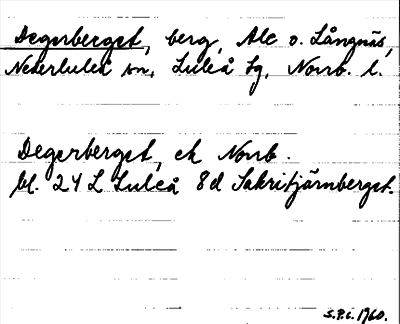 Degerberget, berg, Ale o. Långnäs,
Nederluleå sn, Luleå tg, Norrb. l.
Degerberget, ek Norrb.
bl. 24 L Luleå 8d Sakritjärnberget.
S.P.C. 1960.